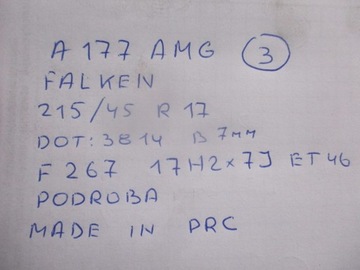 A 177 AMG 3
FALKEN
215/45 R 17
DOT: 3814 B 7mm
F 267 17H2x7J ET 46
PODROBA
MADE IN PRC